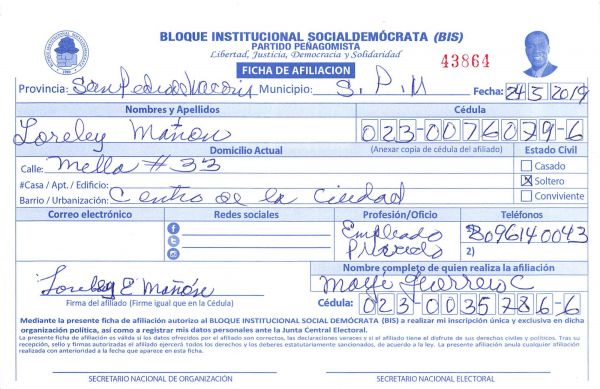 BLOQUE INSTITUCIONAL SOCIALDEMÓCRATA (BIS)
PARTIDO PEÑAGOMISTA
Libertad, Justicia, Democracia y Solidaridad
FICHA DE AFILIACION
43864
Provincia: San Pedro de Macorís Municipio: S.P.M Fecha: 24 5 2019
Nombres y Apellidos Cédula
Loreley Mañón 023-0076079-6
Domicilio Actual (Anexar copia de cédula del afiliado) Estado Civil
Calle: Mella # 33 Casado
#Casa / Apt. / Edificio: X Soltero
Barrio / Urbanización: Centro de la Ciudad Conviviente
Correo electrónico Redes sociales Profesión/Oficio Teléfonos
Empleado 1) 8096140043
Privado 2)
Nombre completo de quien realiza la afiliación
Loreley E Mañón Guerrero C
Firma del afiliado (Firme igual que en la Cédula) Cédula: 023-0035786-6
Mediante la presente ficha de afiliación autorizo al BLOQUE INSTITUCIONAL SOCIAL DEMÓCRATA (BIS) a realizar mi inscripción única y exclusiva en dicha
organización política, así como a registrar mis datos personales ante la Junta Central Electoral.
La presente ficha de afiliación es válida si los datos ofrecidos por el afiliado son correctos, las declaraciones veraces y si el afiliado tiene el disfrute de sus derechos civiles y políticos. Tras su
recepción, sello y firmas autorizadas el afiliado ejercerá todos los derechos y los deberes estatutariamente sancionados, de acuerdo a la ley. La presente afiliación anula cualquier afiliación
realizada con anterioridad a la fecha que aparece en esta ficha.
SECRETARIO NACIONAL DE ORGANIZACIÓN SECRETARIO NACIONAL ELECTORAL